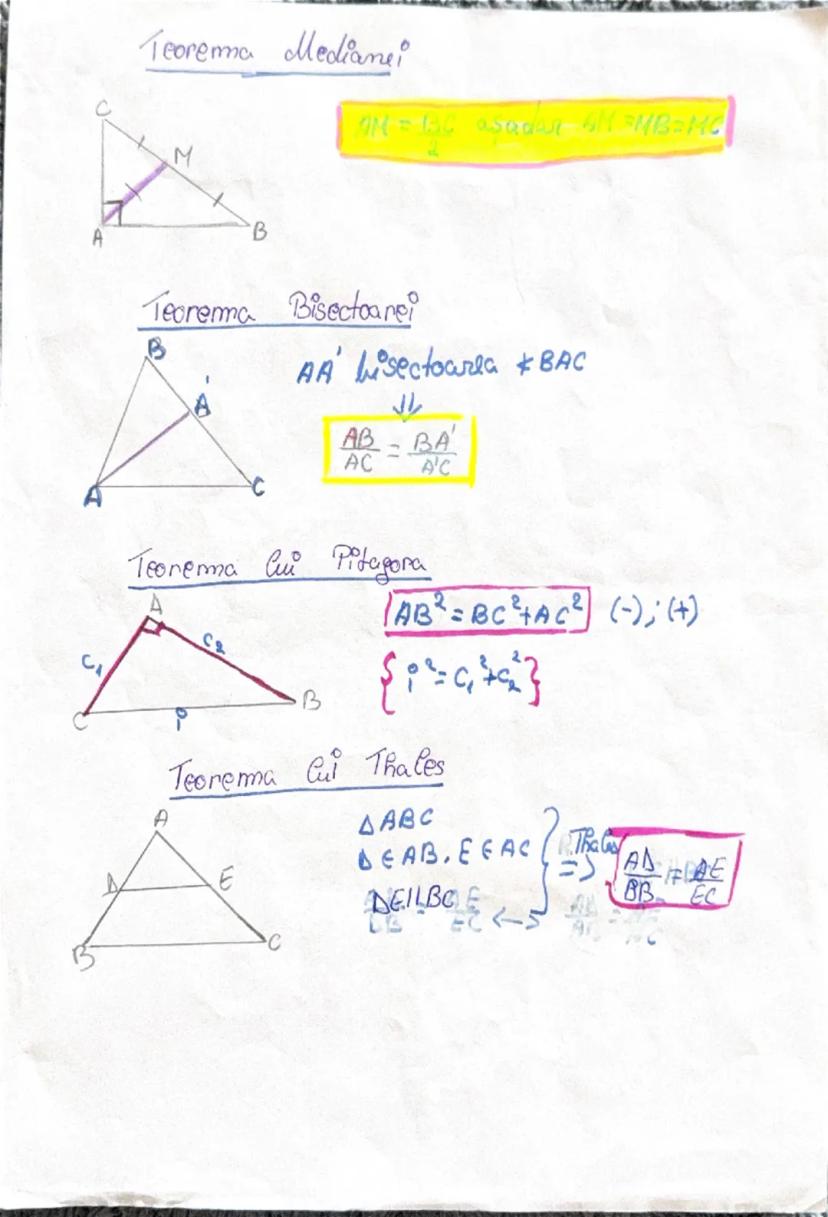 Teorema Medianei
C
M
A
B
AM = BC/2 așadar AM = MB = MC
Teorema Bisectoarei
B
A'
A
C
AA' bisectoarea ∢ BAC
⇓
AB/AC = BA'/A'C
Teorema lui Pitagora
A
C₁
C₂
C
i
B
AB² = BC² + AC² (-); (+)
{ i² = C₁² + C₂² }
Teorema lui Thales
A
D
E
B
C
Δ ABC
D ∈ AB, E ∈ AC
DE || BC
Thales
=>
= AE/EC
<->